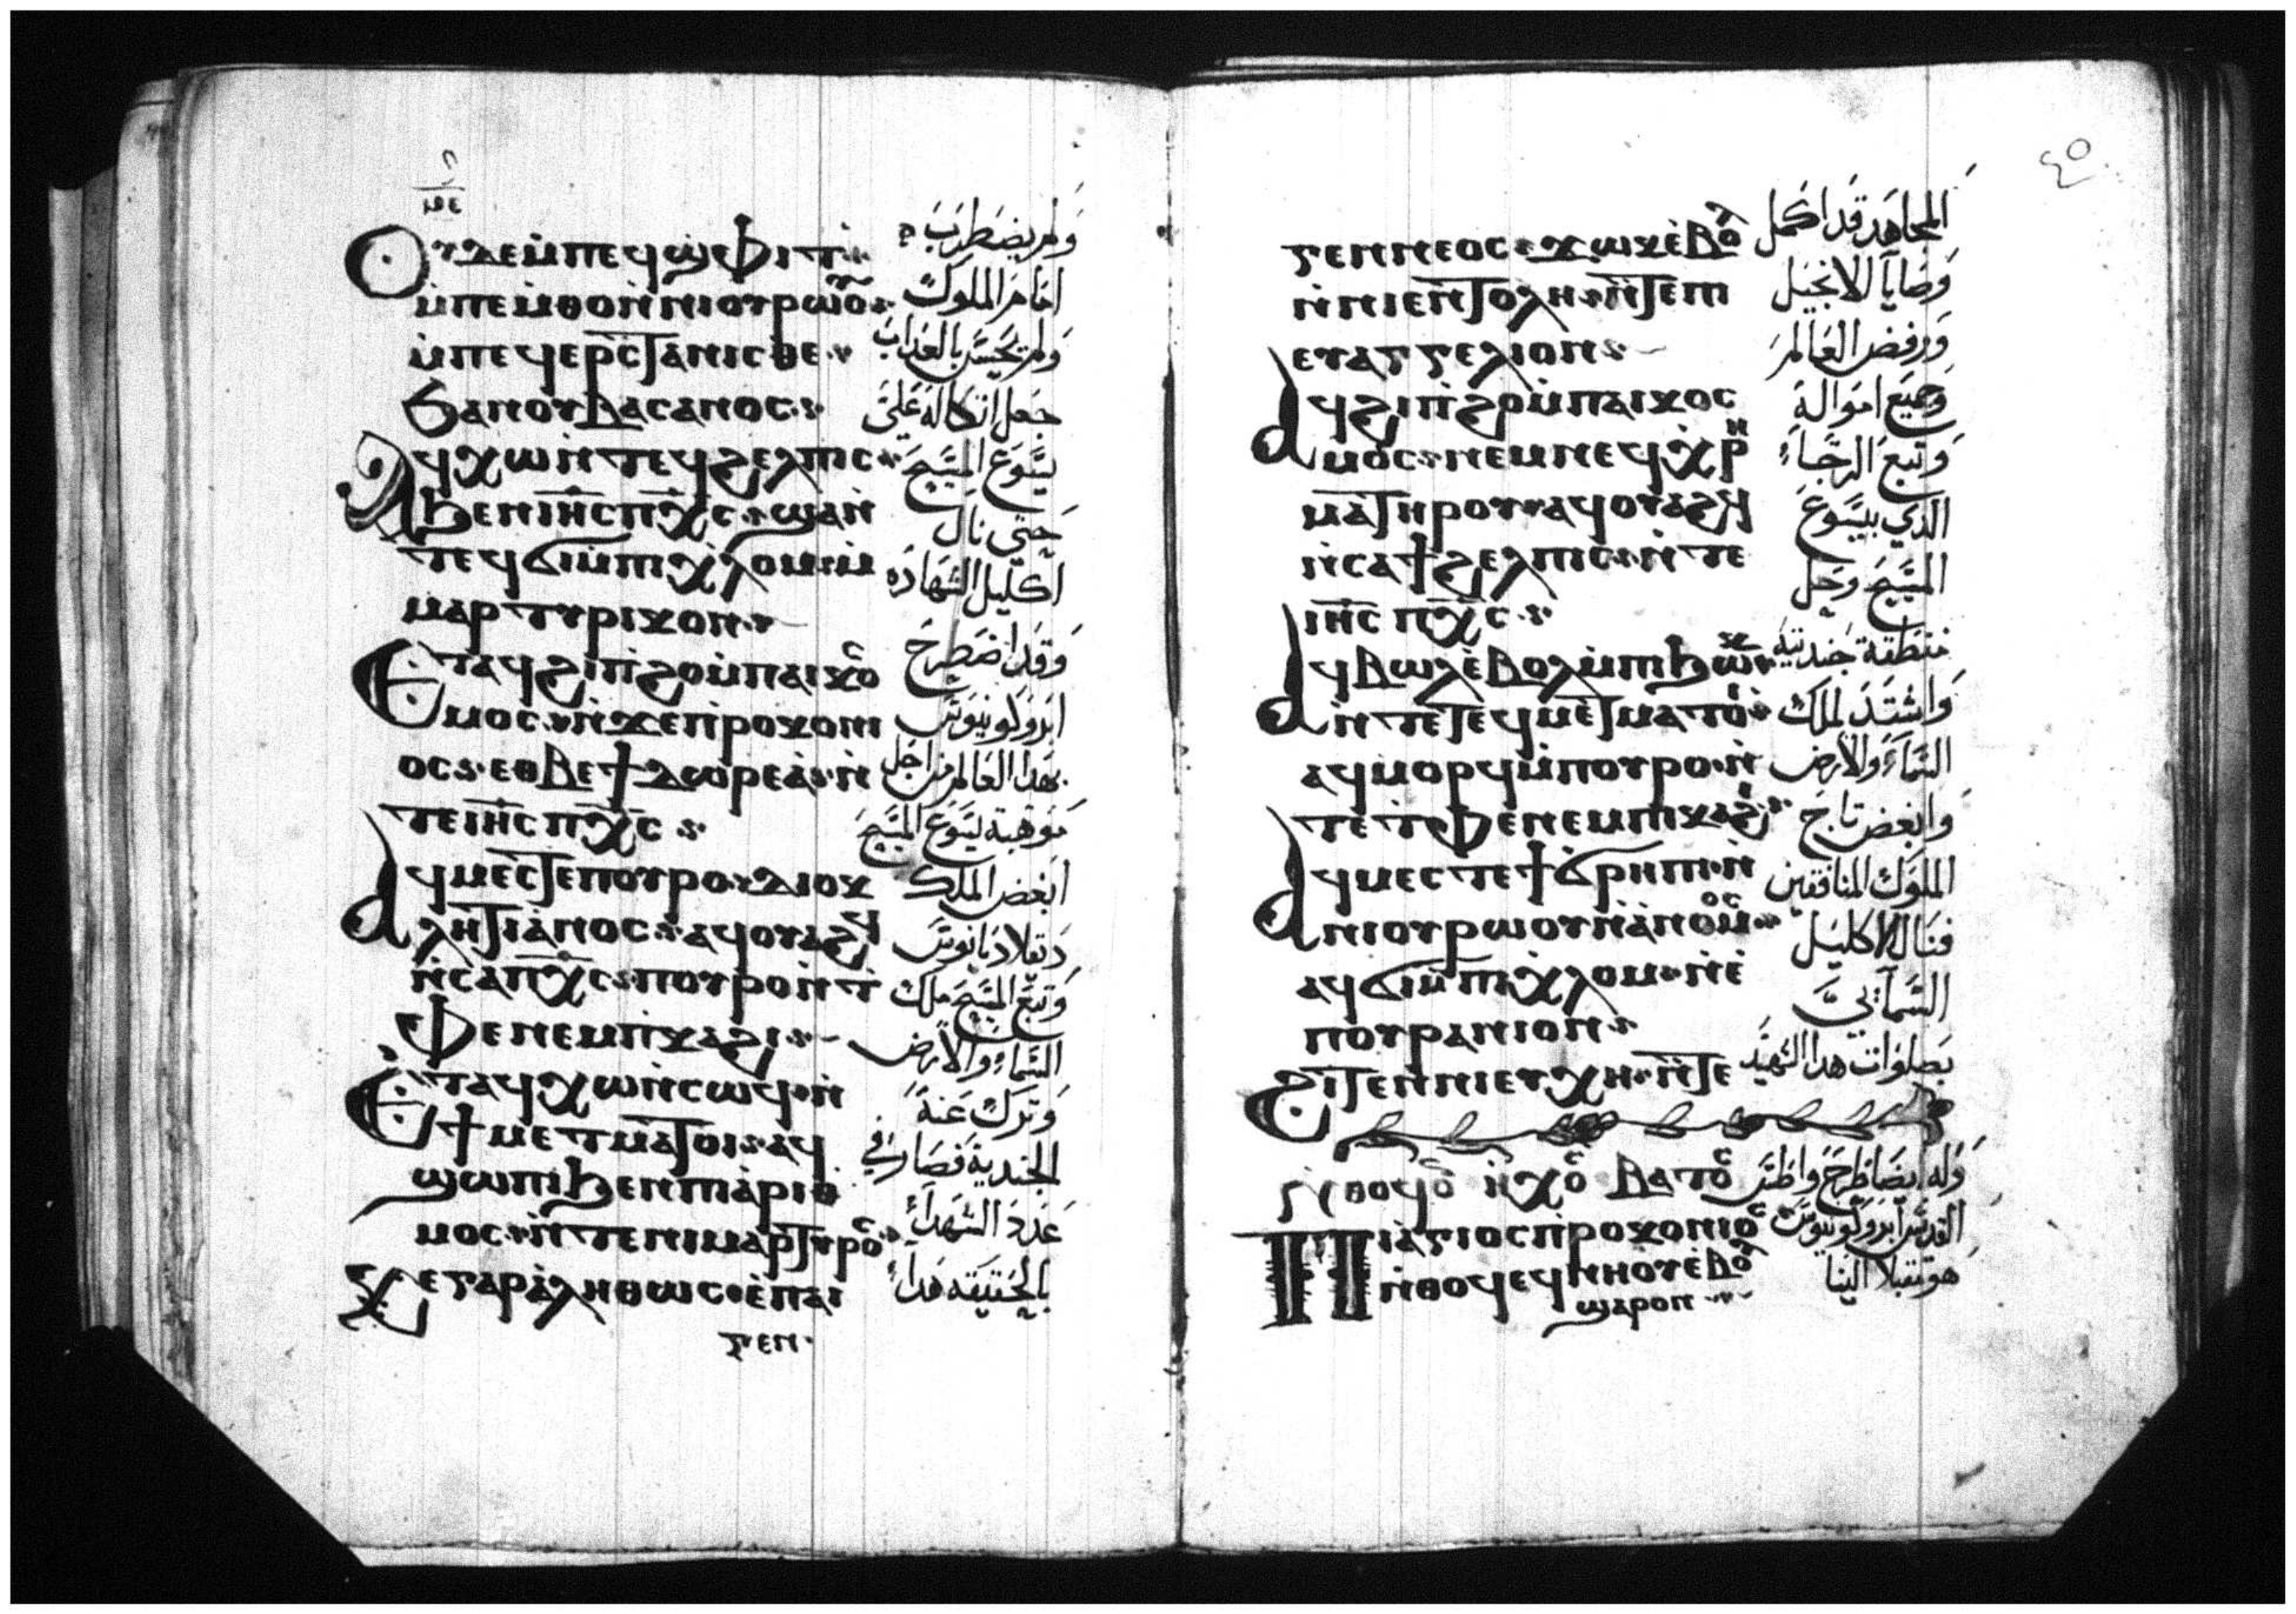 ⲟⲩⲇⲉ ⲙ̀ⲡⲉϥϣ̀ⲫⲓⲧ
ⲙ̀ⲡⲉⲙⲑⲟ ⲛ̀ⲛⲓⲟⲩⲣⲱⲟⲩ
ⲙ̀ⲡⲉϥⲉⲣⲥⲧⲁⲛⲓⲥⲑⲉ
ϧⲁⲛⲟⲩⲃⲁⲥⲁⲛⲟⲥ
ⲁϥⲭⲱ ⲛ̀ⲧⲉϥϩⲉⲗⲡⲓⲥ
ϧⲉⲛ ⲓⲏⲥ ⲡⲭⲥ ϣⲁⲛ
ⲧⲉϥϭⲓ ⲙ̀ⲡⲓⲭⲗⲟⲙ ⲙ̀
ⲙⲁⲣⲧⲩⲣⲓⲕⲟⲛ
ⲉⲧⲁϥϩⲓⲡ̀ϩⲟ ⲙ̀ⲡⲁⲓⲕⲟⲥ
ⲙⲟⲥ ⲛ̀ϫⲉ ⲡ̀ⲣⲟⲕⲟⲛⲓ
ⲟⲥ ⲉⲑⲃⲉ ϯⲇⲱⲣⲉⲁ ⲛ̀
ⲧⲉ ⲓⲏⲥ ⲡⲭⲥ
ⲁϥⲙⲉⲥⲧⲉ ⲡⲟⲩⲣⲟ ⲇⲓⲟⲕ
ⲗⲏⲧⲓⲁⲛⲟⲥ ⲁϥⲟⲩⲁϩϥ
ⲛ̀ⲥⲁ ⲡⲭⲥ ⲡⲟⲩⲣⲟ ⲛ̀ⲧ
ⲫⲉ ⲛⲉⲙ ⲡ̀ⲕⲁϩⲓ
ⲉⲧⲁϥⲭⲱ ⲛ̀ⲥⲱϥ ⲛ̀
ϯⲙⲉⲧⲙⲁⲧⲟⲓ ⲁϥ
ϣⲱⲡⲓ ϧⲉⲛ ⲡⲓⲁⲣⲓⲑ
ⲙⲟⲥ ⲛ̀ⲧⲉ ⲛⲓⲙⲁⲣⲧⲩⲣⲟⲥ
ⲅⲉ ⲅⲁⲣ ⲁⲗⲏⲑⲱⲥ ⲉ̀ⲡⲁⲓ
ⲅⲉⲛ
ولم يضطرب
امام الملوك
ولم يحس بالعذاب
جعل اتكاله على
يسوع المسيح
حتى نال
اكليل الشهاده
وقد اضطرح
ابروكونيوس
بهدا العالم من اجل
موهبة يسوع المسيح
ابغض الملك
دقلاديانوس
وتبع المسيح ملك
السماء والارض
وترك عنه
الجندية فصار في
عدد الشهداء
بالحقيقه هدا
٤٥
ⲅⲉⲛⲛⲉⲟⲥ ⲉϥϫⲱⲕ ⲉ̀ⲃⲟⲗ
ⲛ̀ⲛⲓⲉⲛⲧⲟⲗⲏ ⲛ̀ⲧⲉ ⲡⲓ
ⲉⲩⲁⲅⲅⲉⲗⲓⲟⲛ
ⲁϥϩⲓⲡ̀ϩⲟ ⲙ̀ⲡⲁⲓⲕⲟⲥ
ⲙⲟⲥ ⲛⲉⲙ ⲛⲉϥⲭⲣⲏ
ⲙⲁ ⲧⲏⲣⲟⲩ ⲁϥⲟⲩⲁϩϥ
ⲛ̀ⲥⲁ ϯϩⲉⲗⲡⲓⲥ ⲛ̀ⲧⲉ
ⲓⲏⲥ ⲡⲭⲥ
ⲁϥⲃⲱⲗ ⲉ̀ⲃⲟⲗ ⲙ̀ⲡⲓϧⲱⲕ
ⲛ̀ⲧⲉ ⲧⲉϥⲙⲉⲧⲙⲁⲧⲟⲓ
ⲁϥⲙⲟⲣϥ ⲙ̀ⲡⲟⲩⲣⲟ ⲛ̀
ⲧⲉ ⲧ̀ⲫⲉ ⲛⲉⲙ ⲡⲓⲕⲁϩⲓ
ⲁϥⲙⲉⲥⲧⲉ ϯϭⲣⲏⲡⲓ ⲛ̀
ⲛⲓⲟⲩⲣⲱⲟⲩ ⲛ̀ⲁⲛⲟⲙⲟⲥ
ⲁϥϭⲓ ⲙ̀ⲡⲓⲭⲗⲟⲙ ⲛ̀ⲉ̀
ⲡⲟⲩⲣⲁⲛⲓⲟⲛ
ϩⲓⲧⲉⲛ ⲛⲓⲉⲩⲭⲏ ⲛ̀ⲧⲉ
ⲏⲭⲟⲥ ⲃⲁⲧⲟⲥ
ⲡⲓⲁⲅⲓⲟⲥ ⲡ̀ⲣⲟⲕⲟⲛⲓⲟⲥ
ⲛ̀ⲑⲟϥ ⲉϥⲛⲏⲟⲩ ⲉ̀ⲃⲟⲗ
ϣⲁⲣⲟⲛ
المجاهد قد اكمل
وصايا الانجيل
ورفض العالم
وجميع امواله
وتبع الرجاء
الذي بيسوع
المسيح وحل
منطقة جنديته
واشتد لملك
السماء والارض
وابغض تاج
الملوك المنافقين
فنال الاكليل
السمائي
بصلوات هدا الشهيد
وله ايضا طرح واطس
القديس ابروكونيوس
هو مقبلا الينا